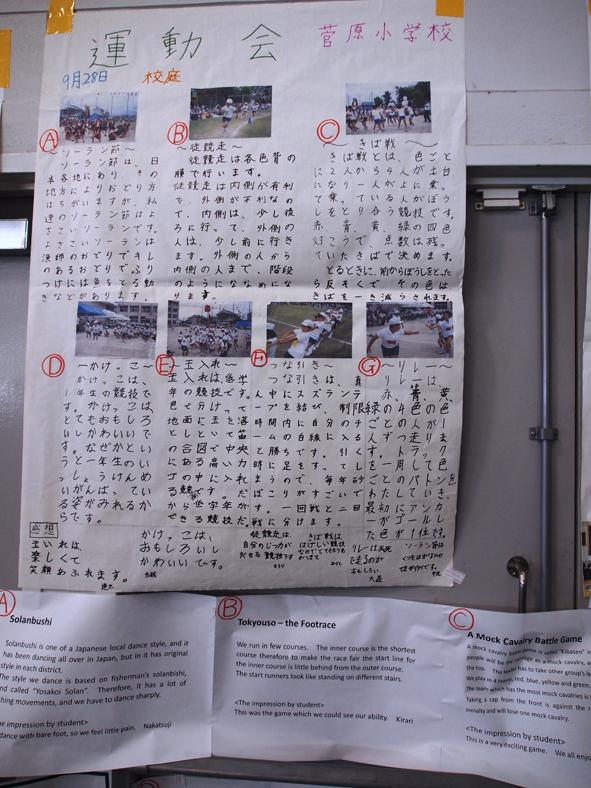 運動会
菅原小学校
9月28日 校庭
A
B
C
～ソーラン節～
ソーラン節は、日
本各地にあり、その
地方によりおどり方
はちがいますが、私
達のソーラン節はよ
さこいソーランです。
よさこいソーランは
漁師のおどりでキレ
のあるおどりでふり
つけには魚をとる動
きなどがあります。
～徒競走～
徒競走は各色背の
順で行います。
徒競走は内側が有利
で、外側が不利なの
で、内側は、少し後
ろに行って、外側の
人は、少し前に行き
ます。外側の人から
内側の人まで、階段
のようにななめにな
ります。
～きば戦～
きば戦とは、色ごと
に2人から4人が土台
になり一人が上に乗っ
て、乗っている人がぼう
しをとり合う競技です。
赤、青、黄、緑の四色
対こうで、点数は残っ
ていたきばで決めます。
とるときに、前からぼうしをとった
ら反そくで、その色は
きばを一き減らされます。
D
E
F
G
～かけっこ～
かけっこは、
1年生の競技で
す。かけっこは
とてもおもしろ
いしかわいいで
す。なぜかとい
うと一年生のい
っしょうけんめ
いがんばってい
る姿がみれるか
らです。
～玉入れ～
玉入れは、低学
年の競技です。
色で分けって
地面に玉を落
としといて笛
の合図で中央
にある高い力
ゴの中に入れ
る競技です。だ
から低学年が
できる競技だ。
～つな引き～
つな引きは、真
人中にスズランテ
ープを結び、制限
時間内に自分のチ
ームの白線に入る
と勝ちです。引く
時に足をすってし
まうので、毎年砂
ぼこりがすごいで
す。一回戦と二回
戦に分けます。
～リレー～
リレーは、
赤、青、黄、
緑の4色の色
ごとの人が1
人ずつ走りま
す。トラック
を一周して色
ごとのバトンを
わたしていき、
最初にアンカ
ーがゴールし
た色が1位です。
感想
玉いれは、
楽しくて
笑顔あふれます。
かけっこは、
おもしろいし
かわいいです。
徒競走は、
自分のじつ力が
だせる競技です
きらり
きば戦は、
はげしい競技
リレーは大死
で走るのが
おもしろい
ソーラン節は
A
Solanbushi
Solanbushi is one of a Japanese local dance style, and it
has been dancing all over in Japan, but in it has original
style in each district.
The style we dance is based on fisherman's solanbishi,
and called "Yosakoi Solan". Therefore, it has a lot of
shing movements, and we have to dance sharply.
he impression by student>
dance with bare foot, so we feel little pain. Nakatsuji
B
Tokyouso – the Footrace
We run in few courses. The inner course is the shortest
course therefore to make the race fair the start line for
the inner course is little behind from the outer course.
The start runners look like standing on different stairs.
<The impression by student>
This was the game which we could see our ability. Kirari
C
A Mock Cavalry Battle Game
A mock cavalry battle game is called "Kibasen" in
people will be the carriage as a mock cavalry, a
the top. The leader has to take other group's
We play in 4 teams, red, blue, yellow and green
the team which has the most mock cavalries is
Taking a cap from the front is against the r
penalty and will lose one mock cavalry.
<The impression by student>
This is a very exciting game. We all enjo